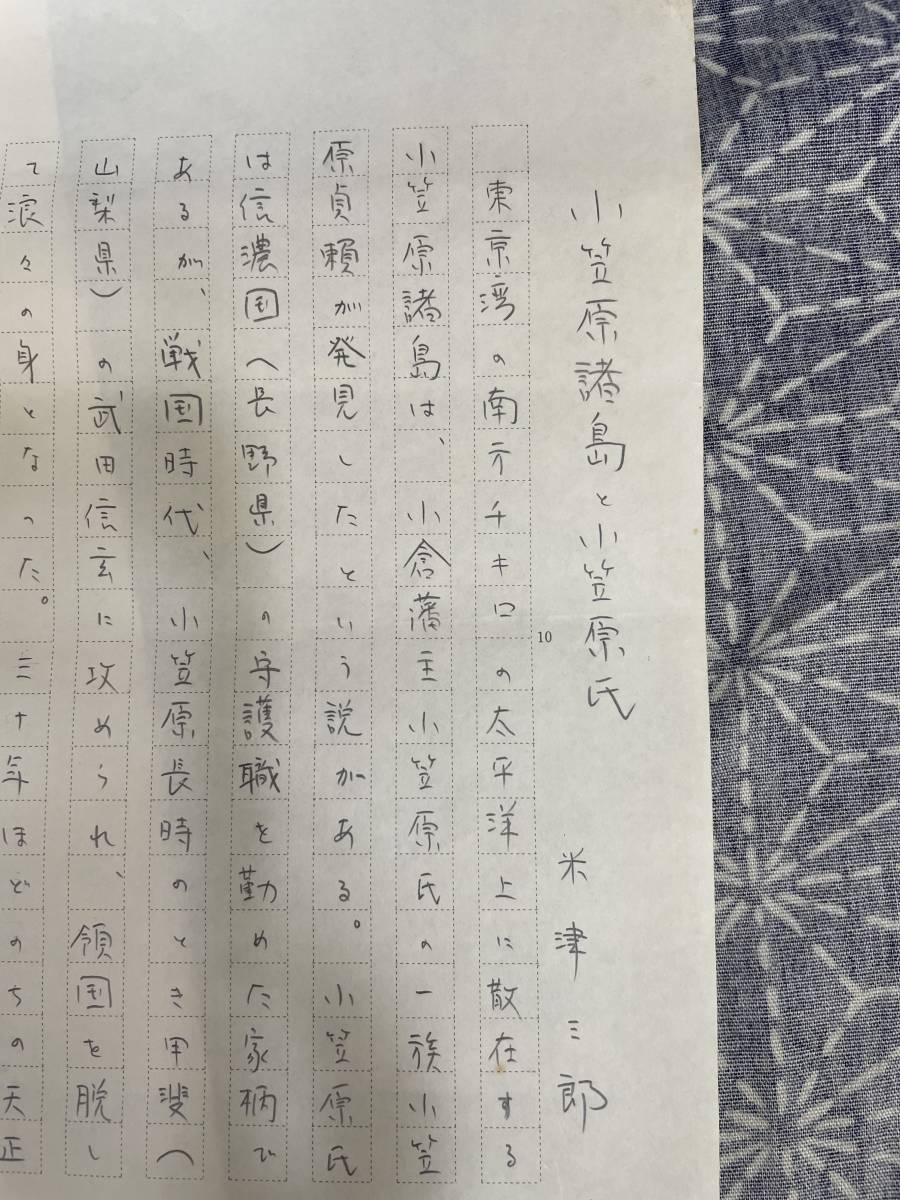 小笠原諸島と小笠原氏
米津三郎
東京湾の南方千キロの太平洋上に散在する
小笠原諸島は、小倉藩主小笠原氏の一族小笠
原貞頼が発見したという説がある。小笠原氏
は信濃国(長野県)の守護職を勤めた家柄で
あるが、戦国時代、小笠原長時のとき甲斐(
山梨県)の武田信玄に攻められ、領国を脱し
て浪々の身となった。三十年ほどのちの天正
10